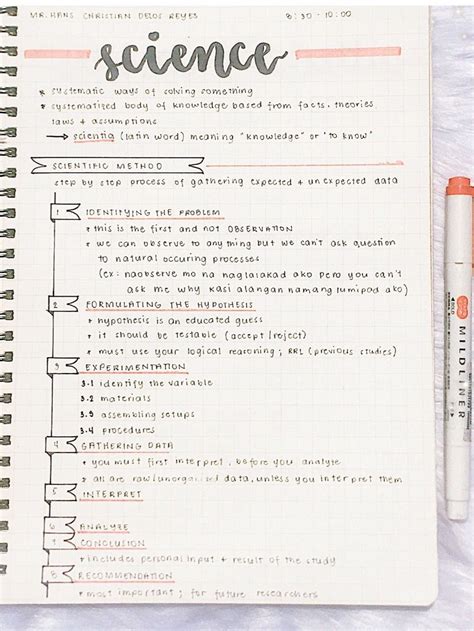 MR. HANS CHRISTIAN DELOS REYES
8:30 - 10:00
science
* systematic ways of solving something
* systematized body of knowledge based from facts, theories,
laws + assumptions
→ scientia (latin word) meaning "knowledge" or "to know"
SCIENTIFIC METHOD
step by step process of gathering expected + unexpected data
1 IDENTIFYING THE PROBLEM
* this is the first and not OBSERVATION
* we can observe to anything but we can't ask question
to natural occuring processes
(ex: naobserve mo na naglalakad ako pero you can't
ask me why kasi alangan namang lumipad ako)
2 FORMULATING THE HYPOTHESIS
* hypothesis is an educated guess
* it should be testable (accept/reject)
* must use your logical reasoning; RRL (previous studies)
3 EXPERIMENTATION
3.1 identify the variable
3.2 materials
3.3 assembling setups
3.4 procedures
4 GATHERING DATA
* you must first interpret, before you analyze
* all are raw/unorganised data, unless you interpret them
5 INTERPRET
6 ANALYZE
7 CONCLUSION
* includes personal input + result of the study
8 RECOMMENDATION
* most important; for future researchers
MILDLINER